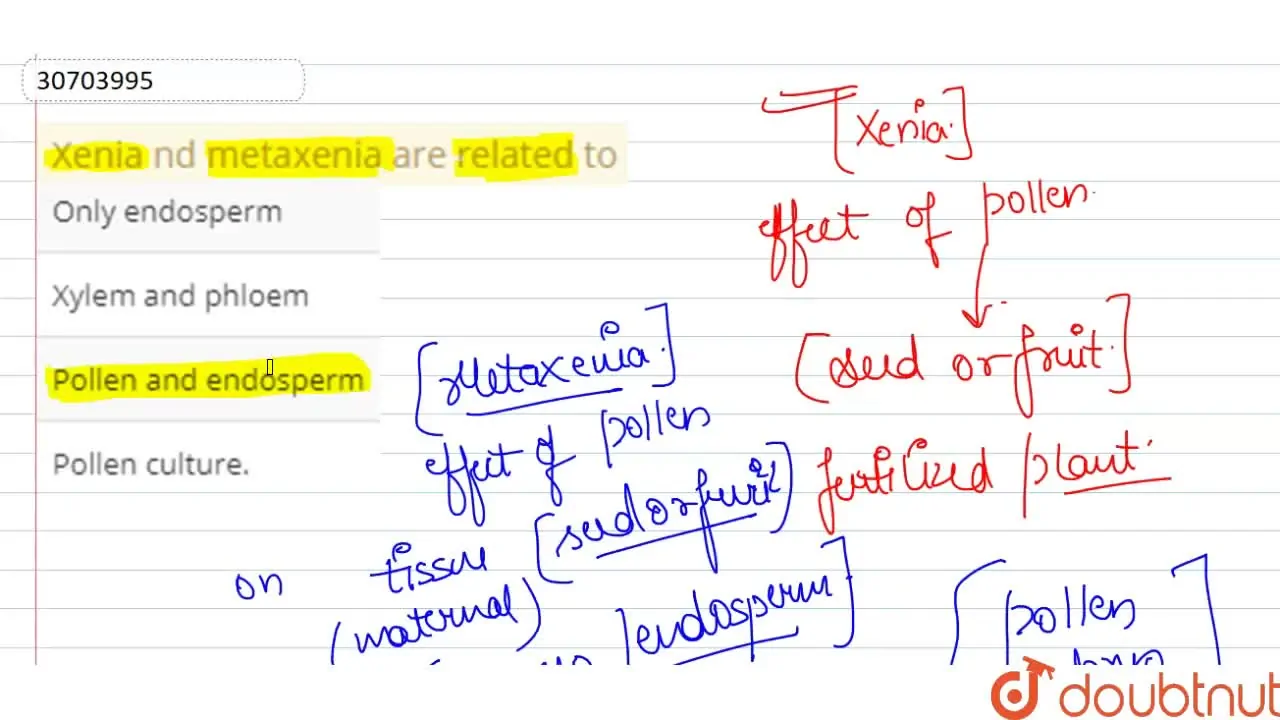 30703995
Xenia nd metaxenia are related to
Only endosperm
Xylem and phloem
Pollen and endosperm
Pollen culture.
[Xenia.]
effect of pollen
(seed or fruit.]
fertilized plant.
[Metaxenia.]
effect of pollen
(seed or fruit)
on tissue
(maternal)
[endosperm]
[pollen]
doubtnut